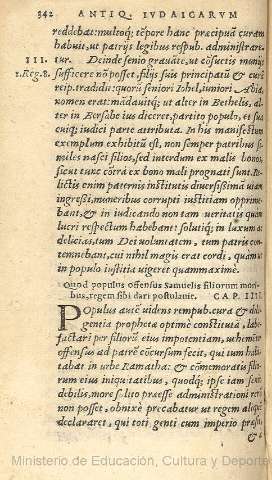 342 ANTIQ. IVDAICARVM
reddebat: multoq; tēpore hanc præcipuā curam
habuit, ut patrijs legibus respub. administrare-
III. tur. Deinde senio grauāte, ut cōsuetis munijs
1. Reg. 8. sufficere nō posset, filijs suis principatū & curā
reip. tradidit: quorū seniori Iohel, iuniori Abia,
nomen erat: mādauitq; ut alter in Bethelis, al-
ter in Bersabe ius diceret, partito populo, et sua
cuiq; iudici parte attributa. In his manifestum
exemplum exhibitū est, non semper patribus si-
miles nasci filios, sed interdum ex malis bonos,
sicut tunc cōtrà ex bono mali prognati sunt. Re-
lictis enim paternis institutis diuersissima uiam
ingressi, muneribus corrupti iustitiam opprime-
bant, & in iudicando non tam ueritatis quàm
lucri respectum habebant: solutiq; in luxum ac
delicias, tum Dei uoluntatem, tum patris con-
temnebant, cui nihil magis erat cordi, quàm ut
in populo iustitia uigeret quammaximè.
Quod populus offensus Samuelis filiorum mori-
bus, regem sibi dari postulauit. CAP. IIII.
POpulus autē uidens rempub. cura & dili-
gentia prophetæ optimè constitutā, labe-
factari per filiorū eius impotentiam, uehemēter
offensus ad patrē cōcursum fecit, qui tum habi-
tabat in urbe Ramatha: & cōmemoratis filio-
rum eius iniquitatibus, quodq; ipse iam senio
debilis, more solito præesse administrationi rerū
non posset, obnixè precabatur ut regem aliquē
declararet, qui toti genti cum imperio præsit,
&
Ministerio de Educación, Cultura y Deporte